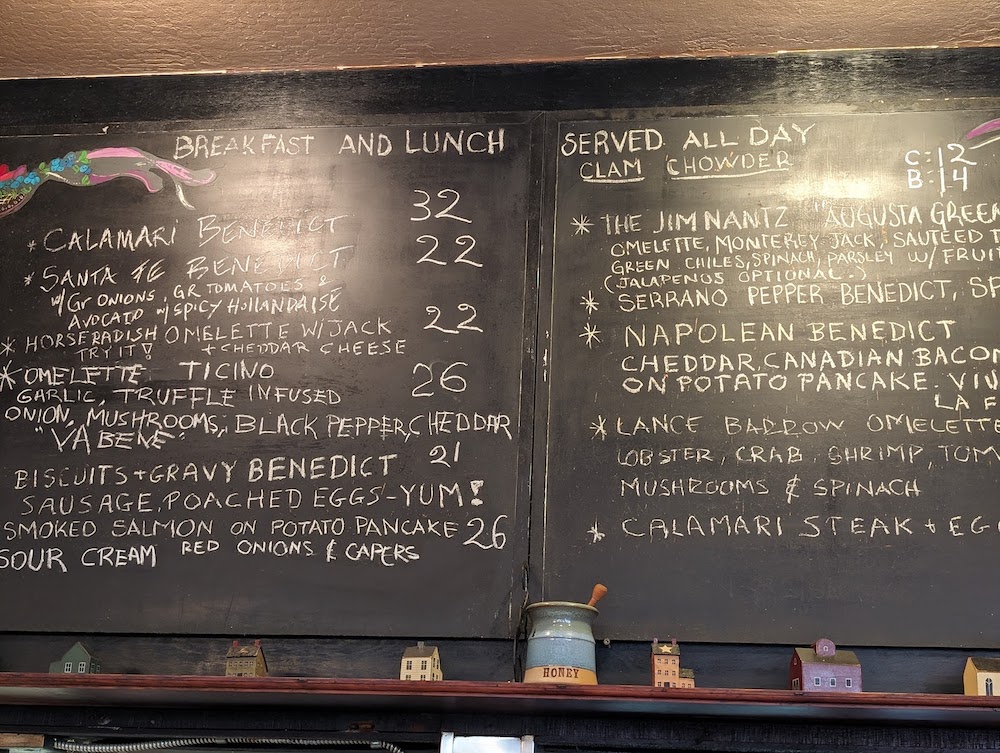 BREAKFAST AND LUNCH
* CALAMARI BENEDICT 32
* SANTA FE BENEDICT 22
W/Gr ONIONS, GR TOMATOES &
AVOCATO W/ SPICY HOLLANDAISE
* HORSERADISH OMELETTE W/JACK 22
TRY IT! + CHEDDAR CHEESE
* OMELETTE TICINO 26
GARLIC, TRUFFLE INFUSED
ONION, MUSHROOMS, BLACK PEPPER, CHEDDAR
"VA BENE"
BISCUITS + GRAVY BENEDICT 21
SAUSAGE, POACHED EGGS - YUM!
SMOKED SALMON ON POTATO PANCAKE 26
SOUR CREAM RED ONIONS & CAPERS
SERVED ALL DAY
CLAM CHOWDER C: 12
B: 14
* THE JIM NANTZ "AUGUSTA GREE
OMELETTE, MONTEREY JACK, SAUTEED T
GREEN CHILES, SPINACH, PARSLEY W/ FRUI
(JALAPENOS OPTIONAL.)
* SERRANO PEPPER BENEDICT, SP
* NAPOLEAN BENEDICT
CHEDDAR, CANADIAN BACON
ON POTATO PANCAKE. VIV
LA F
* LANCE BARROW OMELETTE
LOBSTER, CRAB, SHRIMP, TOM
MUSHROOMS & SPINACH
* CALAMARI STEAK + EG
HONEY